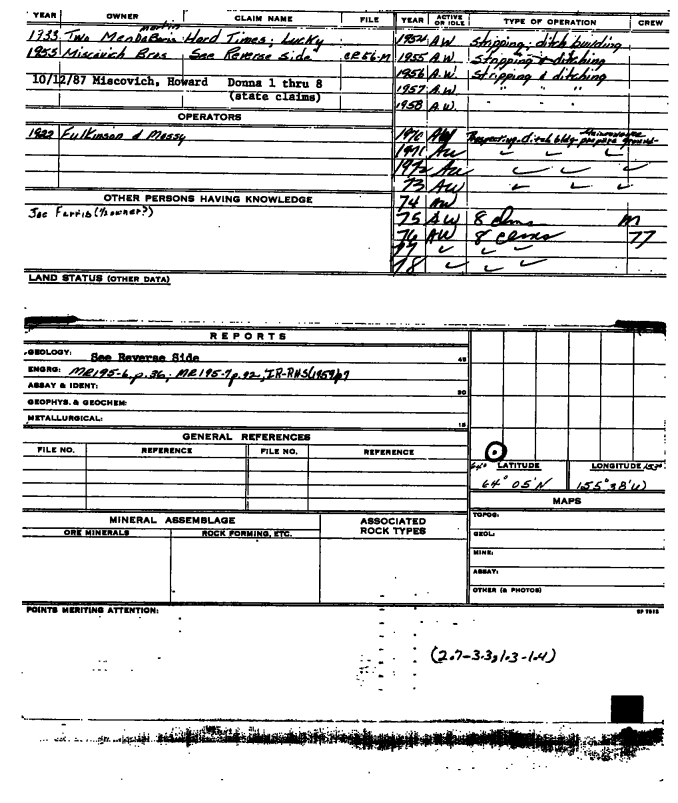 YEAR OWNER CLAIM NAME FILE YEAR ACTIVE OR IDLE TYPE OF OPERATION CREW
martin
1933 Two Hard Times; Lucky
1955 Miscovich Bros See Reverse Side
10/12/87 Miscovich, Howard Donna 1 thru 8
(state claims)
OPERATORS
1922 Fulkinson & Massy
OTHER PERSONS HAVING KNOWLEDGE
Joe Farris (1/2 owner?)
1954 A.W. stripping; ditch building
1955 A.W. stripping & ditching
1956 A.W. Stripping & ditching
1957 A.W. " " "
1958 A.W. " "
1970 AW Prospecting, ditch bldg - prepare ground
1971 AW ✓ ✓ ✓
1972 AW ✓ ✓ ✓
73 AW ✓ ✓ ✓
74 AW
75 AW 8 clms M
76 AW 8 clms 77
77 ✓ ✓ ✓
78 ✓ ✓ ✓
LAND STATUS (OTHER DATA)
REPORTS
GEOLOGY: See Reverse Side 45
ENGRG: MR195-6, p.36; MR195-7 p.42; IR-RHS(1959)p7
ASSAY & IDENT: 30
GEOPHYS. & GEOCHEM:
METALLURGICAL: 15
GENERAL REFERENCES
FILE NO. REFERENCE FILE NO. REFERENCE
64° LATITUDE LONGITUDE 153°
64° 05'N 155° 38'W
MAPS
TOPOG:
GEOL:
MINE:
ASSAY:
OTHER (& PHOTOS)
MINERAL ASSEMBLAGE ASSOCIATED ROCK TYPES
ORE MINERALS ROCK FORMING, ETC.
POINTS MERITING ATTENTION:
(2.7-3.3, 1.3-1.4)